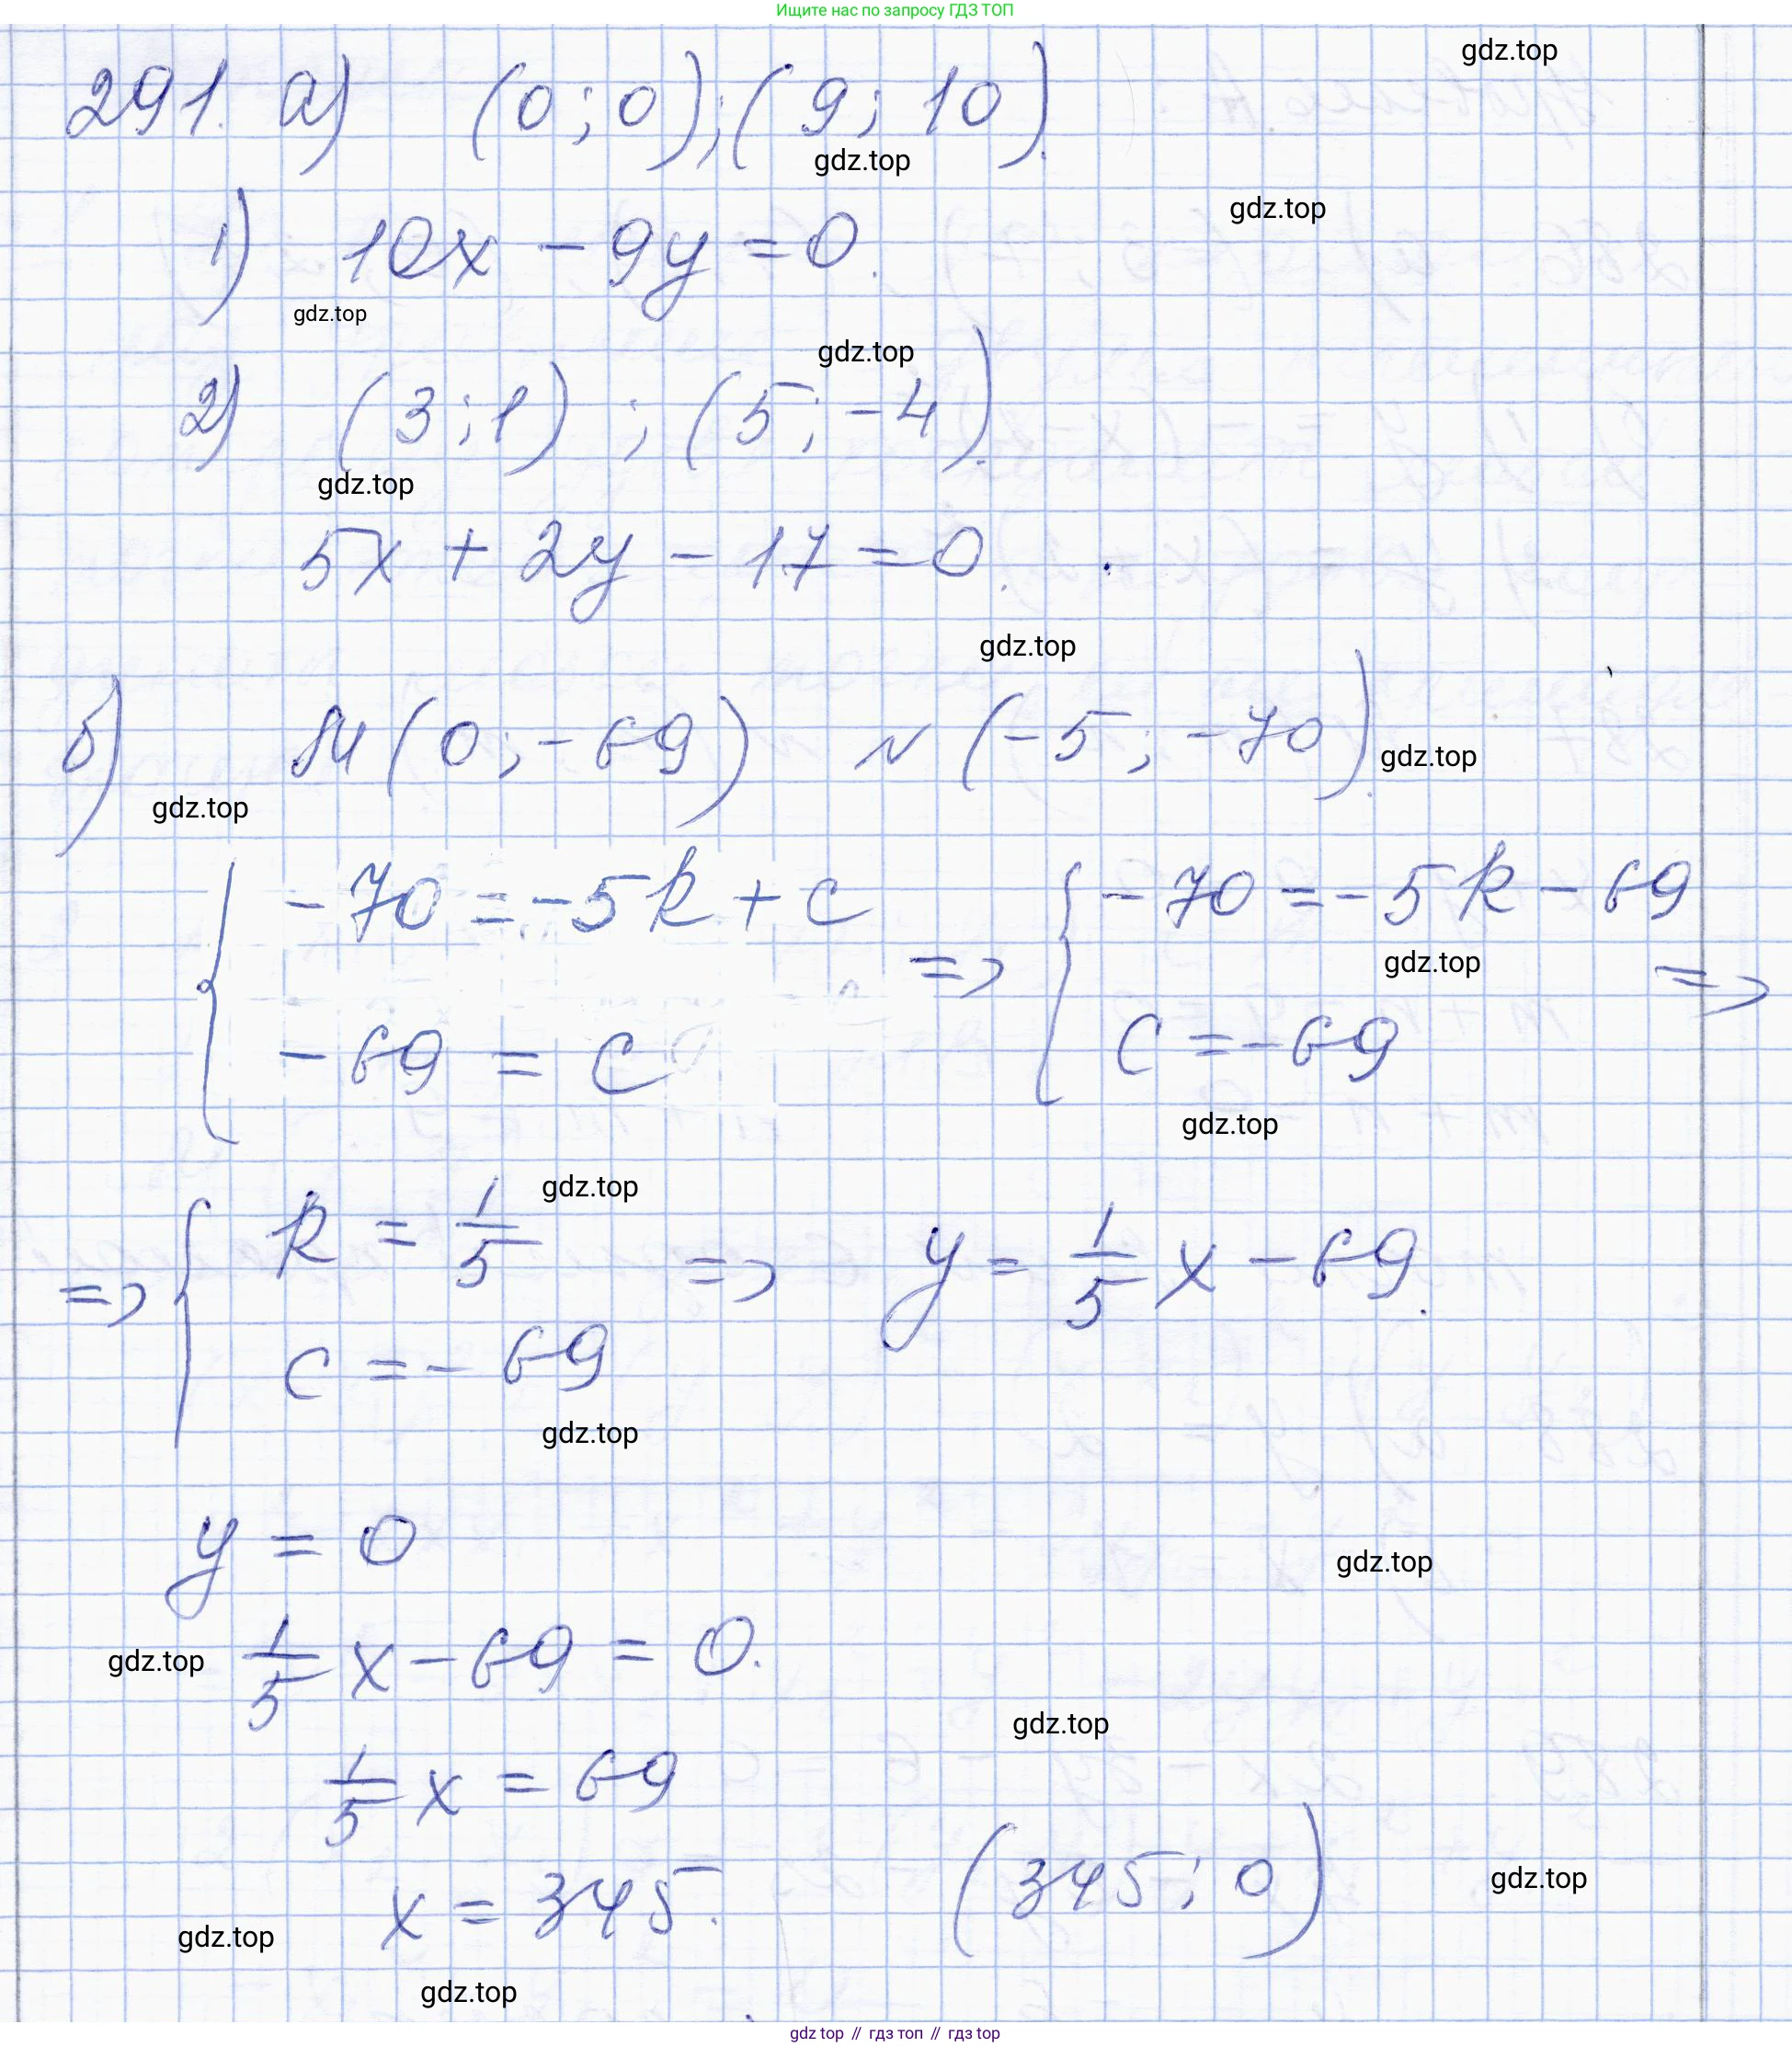 Ищите нас по запросу ГДЗ ТОП
gdz.top
291. а) (0; 0); (9; 10).
gdz.top
gdz.top
1) 10x - 9y = 0.
gdz.top
gdz.top
2) (3; 1); (5; -4).
gdz.top
5x + 2y - 17 = 0.
gdz.top
б) M(0; -69) N(-5; -70).
gdz.top
gdz.top
{ -70 = -5k + c => { -70 = -5k - 69
gdz.top
=>
-69 = c c = -69
gdz.top
gdz.top
=> { k = 1/5 => y = 1/5 x - 69.
c = -69
gdz.top
y = 0
gdz.top
gdz.top
1/5 x - 69 = 0.
gdz.top
1/5 x = 69
gdz.top
x = 345. (345; 0)
gdz.top
gdz.top
gdz top // гдз топ // гдз top